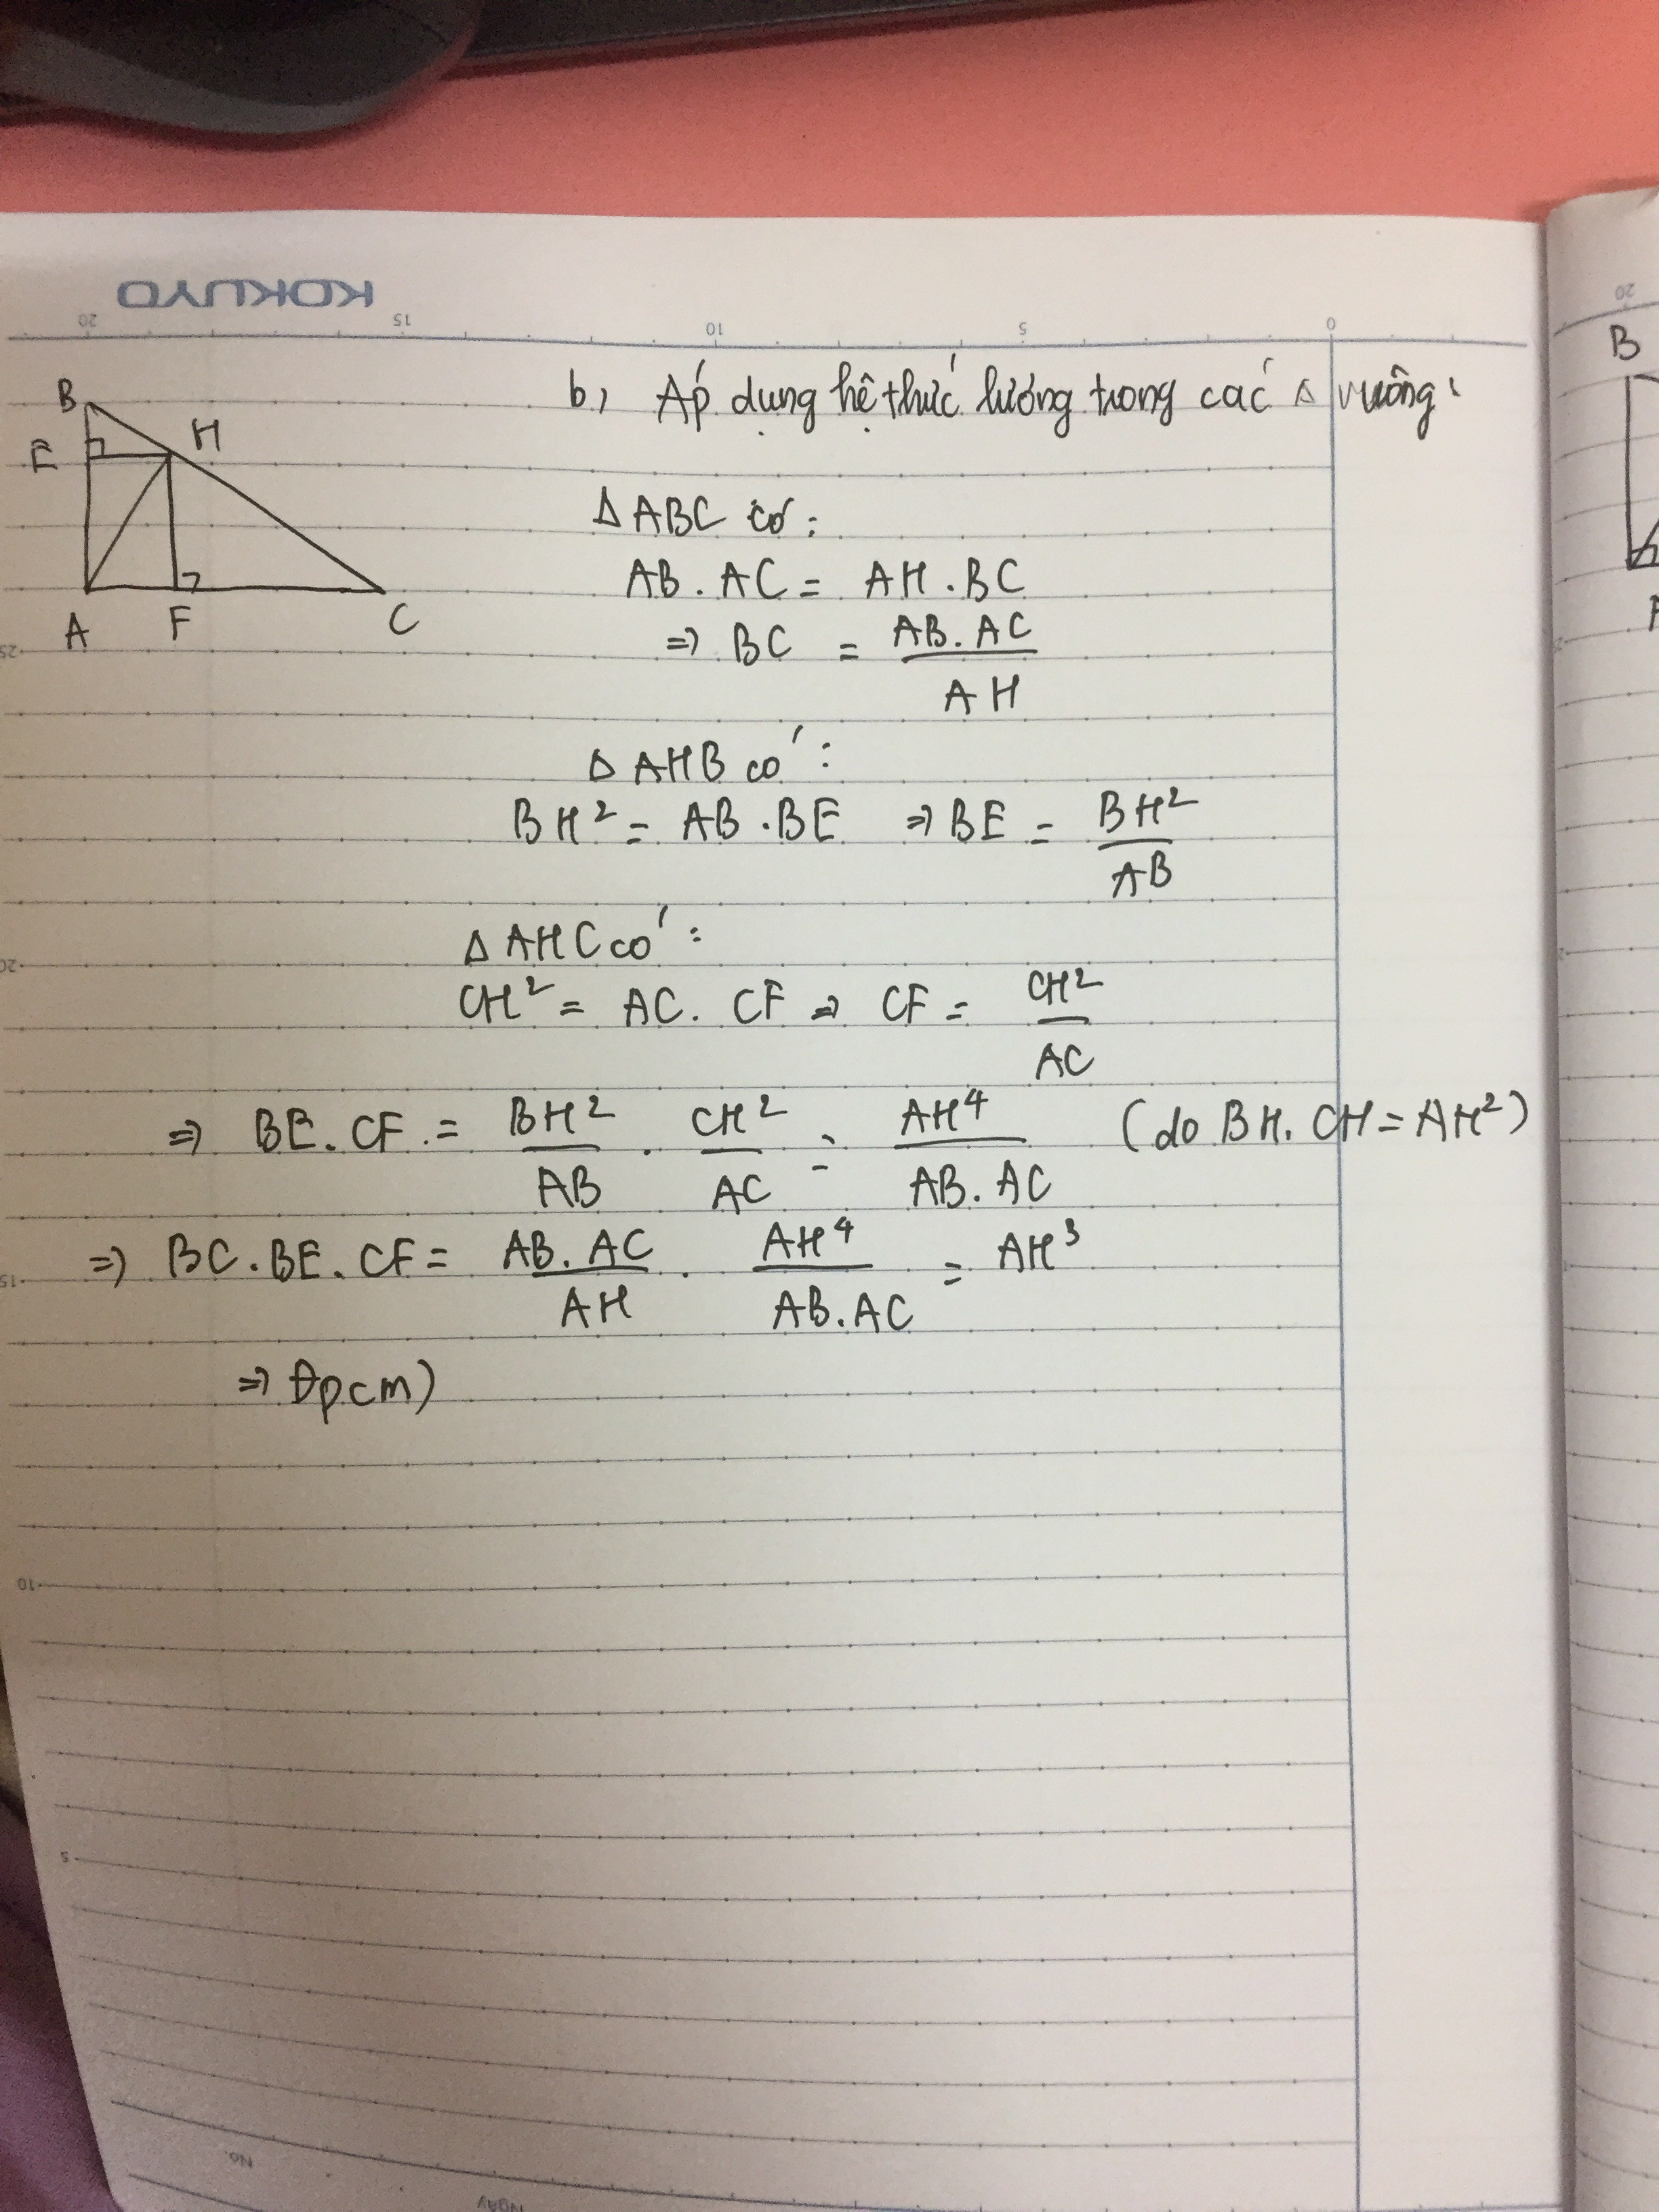 KOKUYO
20 15 10 5 0
20
B
b) Áp dụng hệ thức lượng trong các Δ vuông:
B
H
E
A F C
Δ ABC có:
AB . AC = AH . BC
=> BC = AB. AC / AH
Δ AHB có:
BH² = AB . BE => BE = BH² / AB
Δ AHC có:
CH² = AC . CF => CF = CH² / AC
=> BE . CF = BH² / AB . CH² / AC = AH⁴ / AB. AC (do BH. CH = AH²)
=> BC . BE . CF = AB. AC / AH . AH⁴ / AB. AC = AH³
=> Đpcm)
25
20
15
10
5
No.
Ngày